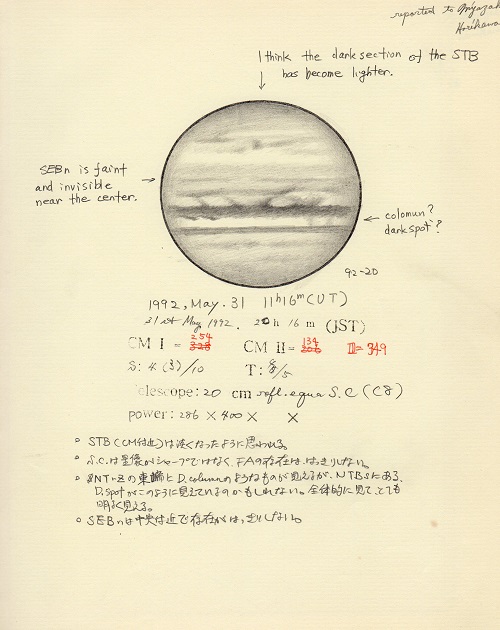 reported to Miyazaki
Horikawa
I think the dark section of the STB
has become lighter.
SEBn is faint
and invisible
near the center.
colomun?
dark spot?
92-20
1992, May. 31 11h16m (UT)
31st May 1992. 20h 16m (JST)
254
CM I = 328 CM II = 206 III= 349
134
S: 4 (3)/10 T: /5
Telescope: 20 cm refl. equa S.C (C8)
power: 286 × 400 × ×
STB (CM付近)は淡くなったように思われる。
S.C.は星像がシャープではなく、FAの存在は、はっきりしない。
NTrZの東端にD.columnのようなものが見えるが、NTBsにある
D.spotがこのように見えているのかもしれない。全体的に見て、とても
明るく見える。
SEBnは中央付近で存在がはっきりしない。